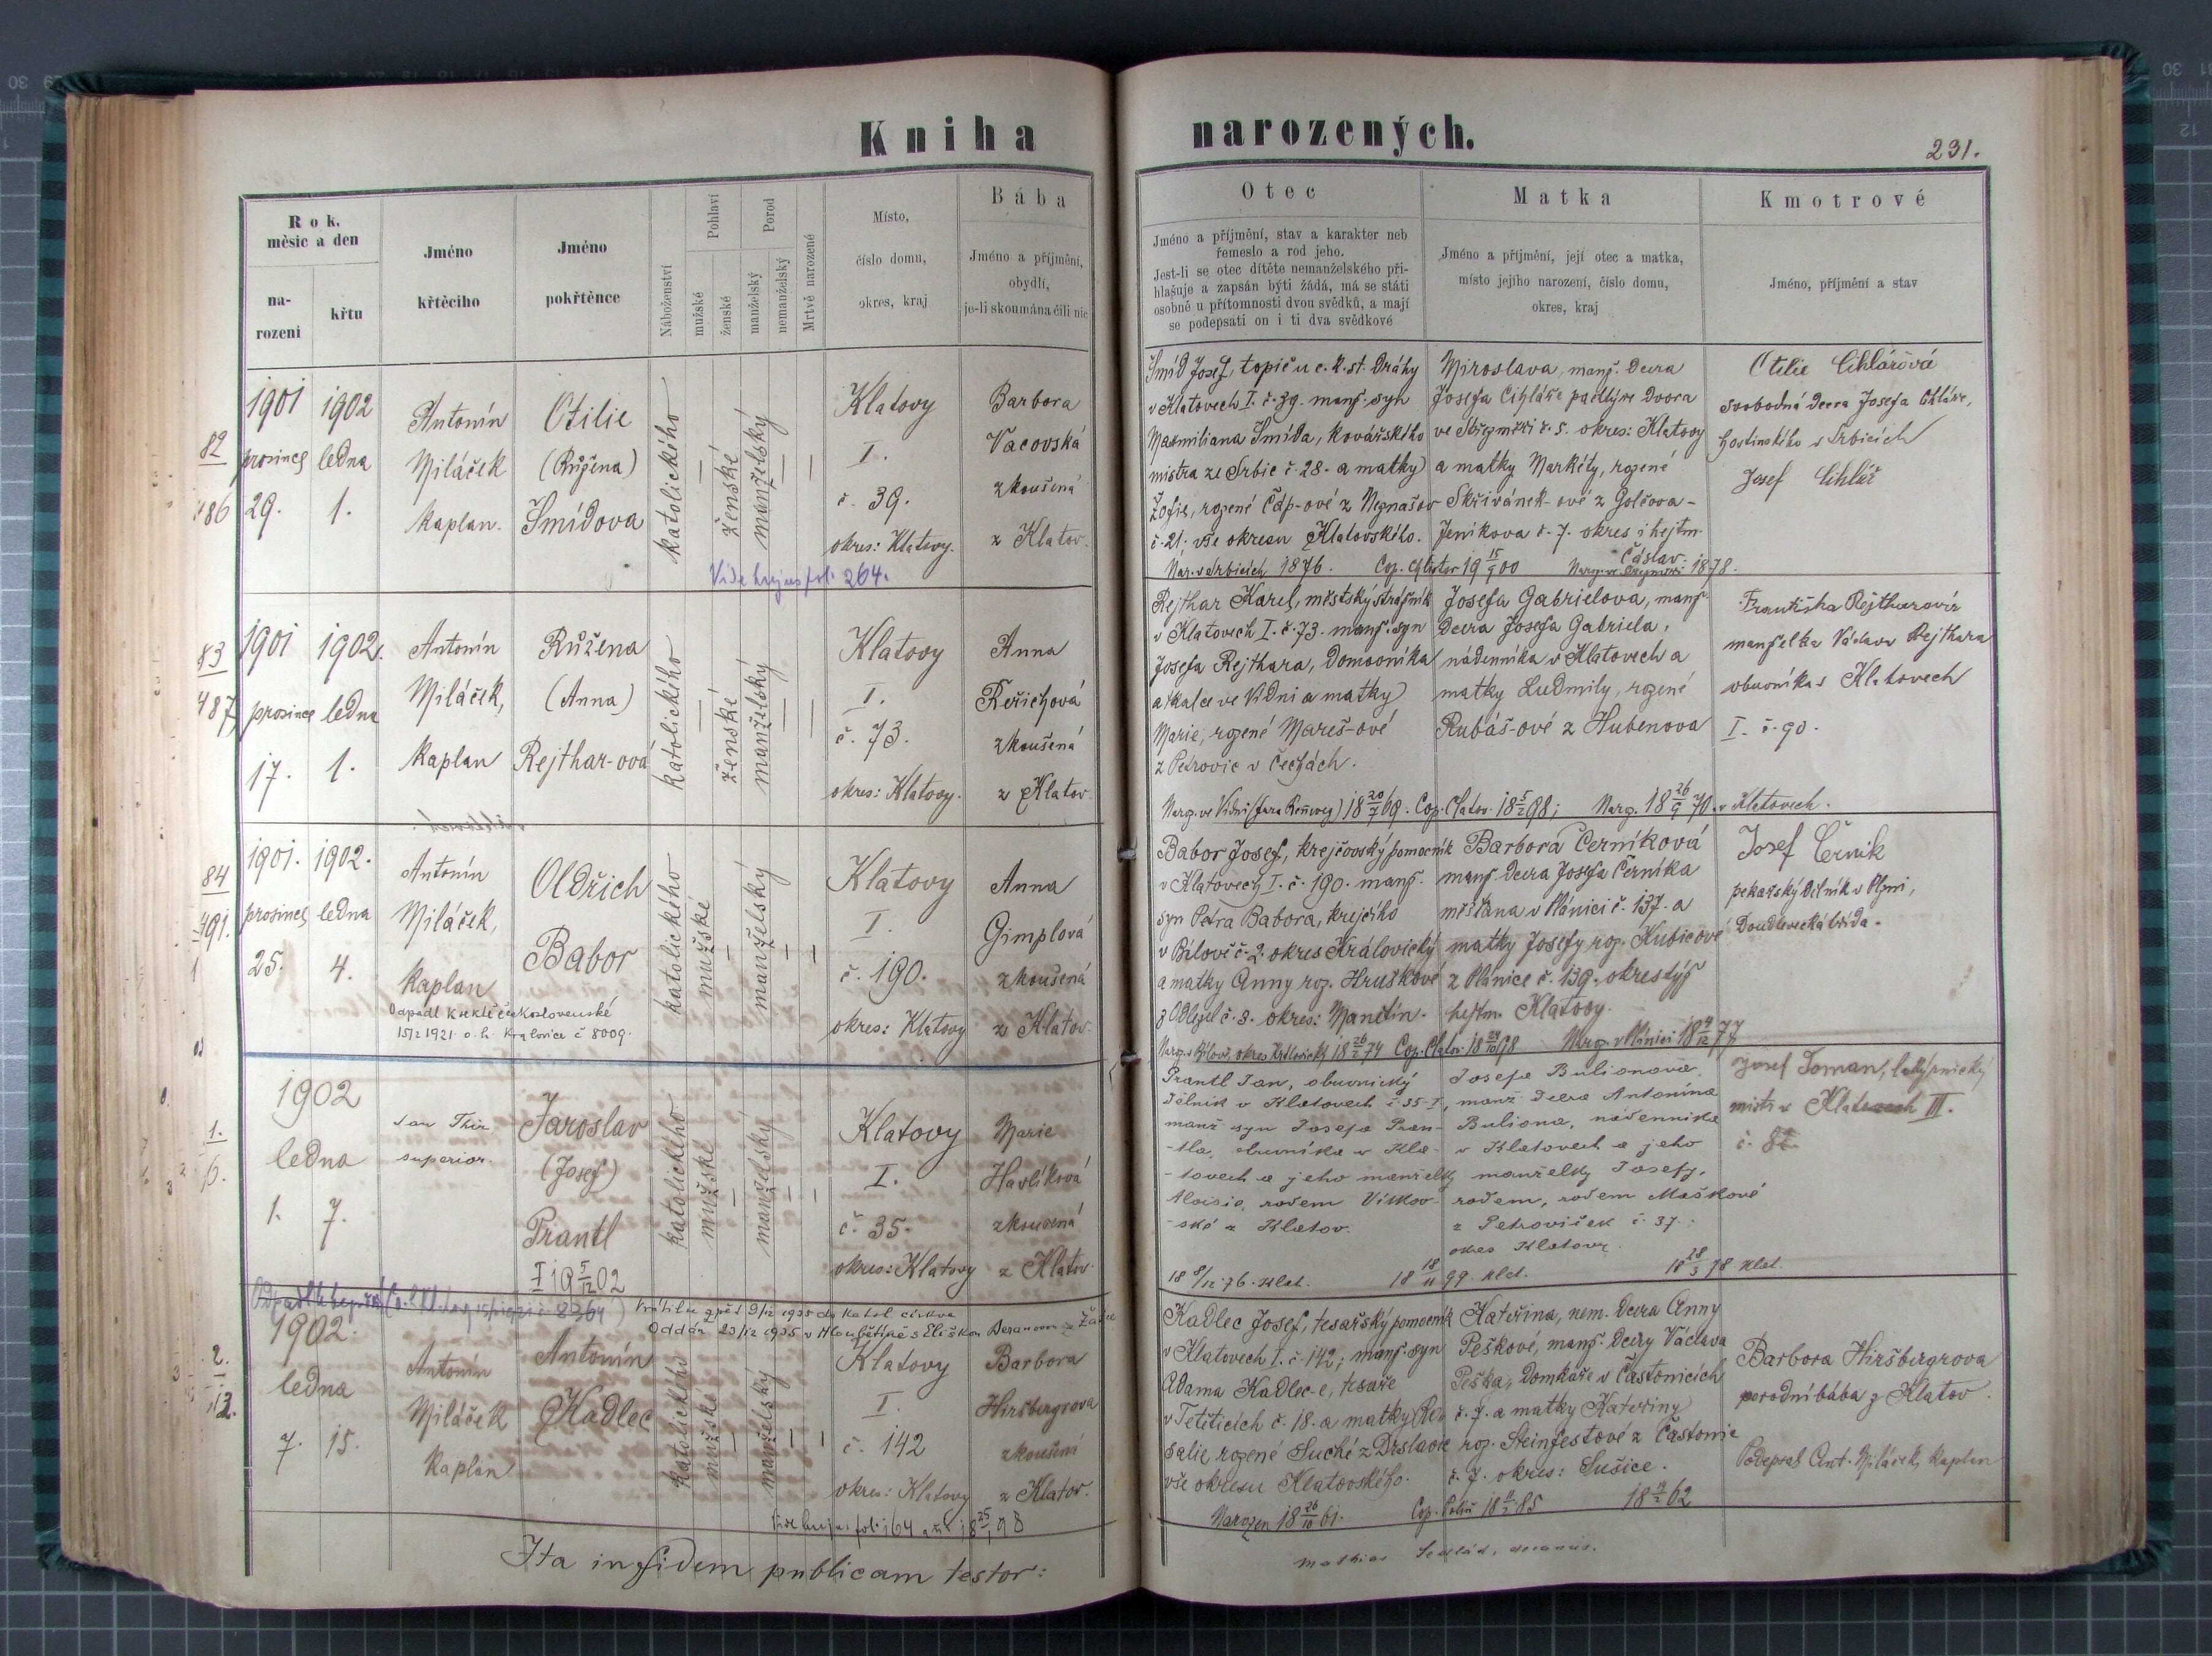 Kniha narozených.
231.
Rok, měsíc a den
narození
křtu
Jméno křtícího
Jméno pokřtěnce
Náboženství
Pohlaví
mužské
ženské
Porod
manželský
nemanželský
Mrtvě narozené
Místo,
číslo domu,
okres, kraj
Bába
Jméno a příjmění,
obydlí,
je-li skoumána čili nic
Otec
Jméno a příjmění, stav a karakter neb
řemeslo a rod jeho.
Jest-li se otec dítěte nemanželského při-
hlašuje a zapsán býti žádá, má se státi
osobně u přítomnosti dvou svědků, a mají
se podepsati on i ti dva svědkové
Matka
Jméno a příjmění, její otec a matka,
místo jejího narození, číslo domu,
okres, kraj
Kmotrové
Jméno, příjmění a stav
82
486
1901
prosince
29.
1902
ledna
1.
Antonín
Miláček
kaplan.
Otilie
(Růžena)
Šmídova
katolického
ženské
manželský
Klatovy
I.
č. 39.
okres: Klatovy.
Barbora
Vacovská
zkoušená
z Klatov.
Šmíd Josef, topič u c. k. st. dráhy
v Klatovech I. č. 39. manž. syn
Maxmiliana Šmída, kovářského
mistra ze Srbic č. 28. a matky
Žofie, rozené Čáp-ové z Neznašov
č. 21. vše okresu Klatovského.
Nar. v Srbicích 1876.
Miroslava, manž. dcera
Josefa Cihláře pachtýře dvora
ve Střezměři č. 5. okres: Klatovy
a matky Markéty, rozené
Skřivánek-ové z Golčova-
Jeníkova č. 7. okres i hejtm.
Čáslav.
1878.
Otilie Cihlářová
svobodná dcera Josefa Cihláře,
hostinského v Srbicích
Josef Cihlář
Vide hujus fol. 264.
83
487
1901
prosince
17.
1902.
ledna
1.
Antonín
Miláček,
kaplan
Růžena
(Anna)
Rejthar-ová
katolického
ženské
manželský
Klatovy
I.
č. 73.
okres: Klatovy.
Anna
Řeřichová
zkoušená
z Klatov.
Rejthar Karel, městský strážník
v Klatovech I. č. 73. manž. syn
Josefa Rejthara, domovníka
a tkalce ve Vídni a matky
Marie, rozené Mareš-ové
z Petrovic v Čechách.
Josefa Gabrielova, manž.
dcera Josefa Gabriela,
nádenníka v Klatovech a
matky Ludmily, rozené
Rubáš-ové z Hubenova
Františka Rejtharová
manželka Václava Rejthara
obuvníka v Klatovech
I. č. 90.
Narz. ve Vídni (fara Rennweg) 18 20/7 69. Cop. Klatov. 18 5/2 98; Narz. 18 26/9 70. v Klatovech.
84
491.
1901.
prosince
25.
1902.
ledna
4.
Antonín
Miláček,
kaplan
Oldřich
Babor
katolického
mužské
manželský
Klatovy
I.
č. 190.
okres: Klatovy
Anna
Gimplová
zkoušená
z Klatov.
Babor Josef, krejčovský pomocník
v Klatovech I. č. 190. manž.
syn Petra Babora, krejčího
v Bílově č. 2. okres Královický
a matky Anny roz. Hruškové
z Odlezel č. 3. okres: Manětín.
Barbora Černíková
manž. dcera Josefa Černíka
měšťana v Plánici č. 137. a
matky Josefy roz. Kubicové
z Plánice č. 139. okres týž
hejtm. Klatovy.
Josef Černik
pekařský dělník v Plzni,
Doudlevecká třída.
Odpadl k církvi československé
15/2 1921. o. h. Kralovice č 8009.
Narz. v Bílově, okres Kralovický 18 26/2 74 Cop. Klatov. 18 29/10 98 Narz. v Plánici 18 4/12 77
1.
6.
1902
ledna
1. 7.
Jan Thir
superior.
Jaroslav
(Josef)
Prantl
I 19 5/12 02
katolického
mužské
manželský
Klatovy
I.
č. 35.
okres: Klatovy
Marie
Havlíková
zkoušená
z Klatov.
Prantl Jan, obuvnický
dělník v Klatovech č 35-I,
manž syn Josefa Pran-
-tla, obuvníka v Kla-
-tovech a jeho manželky
Aloisie, rodem Vítkov-
-ské z Klatov.
18 8/12 76. Klat.
18 18/11 99. klat.
Josefa Bulionova,
manž dcera Antonína
Buliona, nádenníka
v Klatovech a jeho
manželky Josefy,
rodem, rodem Maškové
z Petroviček č. 37.
okres Klatovy.
18 28/3 78 Klat.
Josef Toman,
mistr v Klatovech III.
2.
12.
Vrátil se zpět 9/12 1935 do katol. církve
Oddán 23/12 1935 v Hloubětíně s Eliškou
1902.
ledna
7. 15.
Antonín
Miláček
kaplan
Antonín
Kadlec
katolického
mužské
manželský
Klatovy
I.
č. 142
okres: Klatovy
Barbora
Hiršbergrova
zkoušená
z Klatov.
Kadlec Josef, tesařský pomocník
v Klatovech I. č. 142; manž. syn
Adama Kadlec-e, tesaře
v Tetěticích č. 18. a matky Ro-
salie, rozené Suché z Drslavic
vše okresu Klatovského.
Narozen 18 26/10 61.
Kateřina, nem. dcera Anny
Peškové, manž. dcery Václava
Peška, domkáře v Častonicích
č. 7. a matky Kateřiny
roz. Steinfestové z Častonic
č. 7. okres: Sušice.
Barbora Hiršbergrova
porodní bába z Klatov.
Podepsal Ant. Miláček, kaplan
Ita in fidem publicam testor:
Mathias Sedlák, decanus.